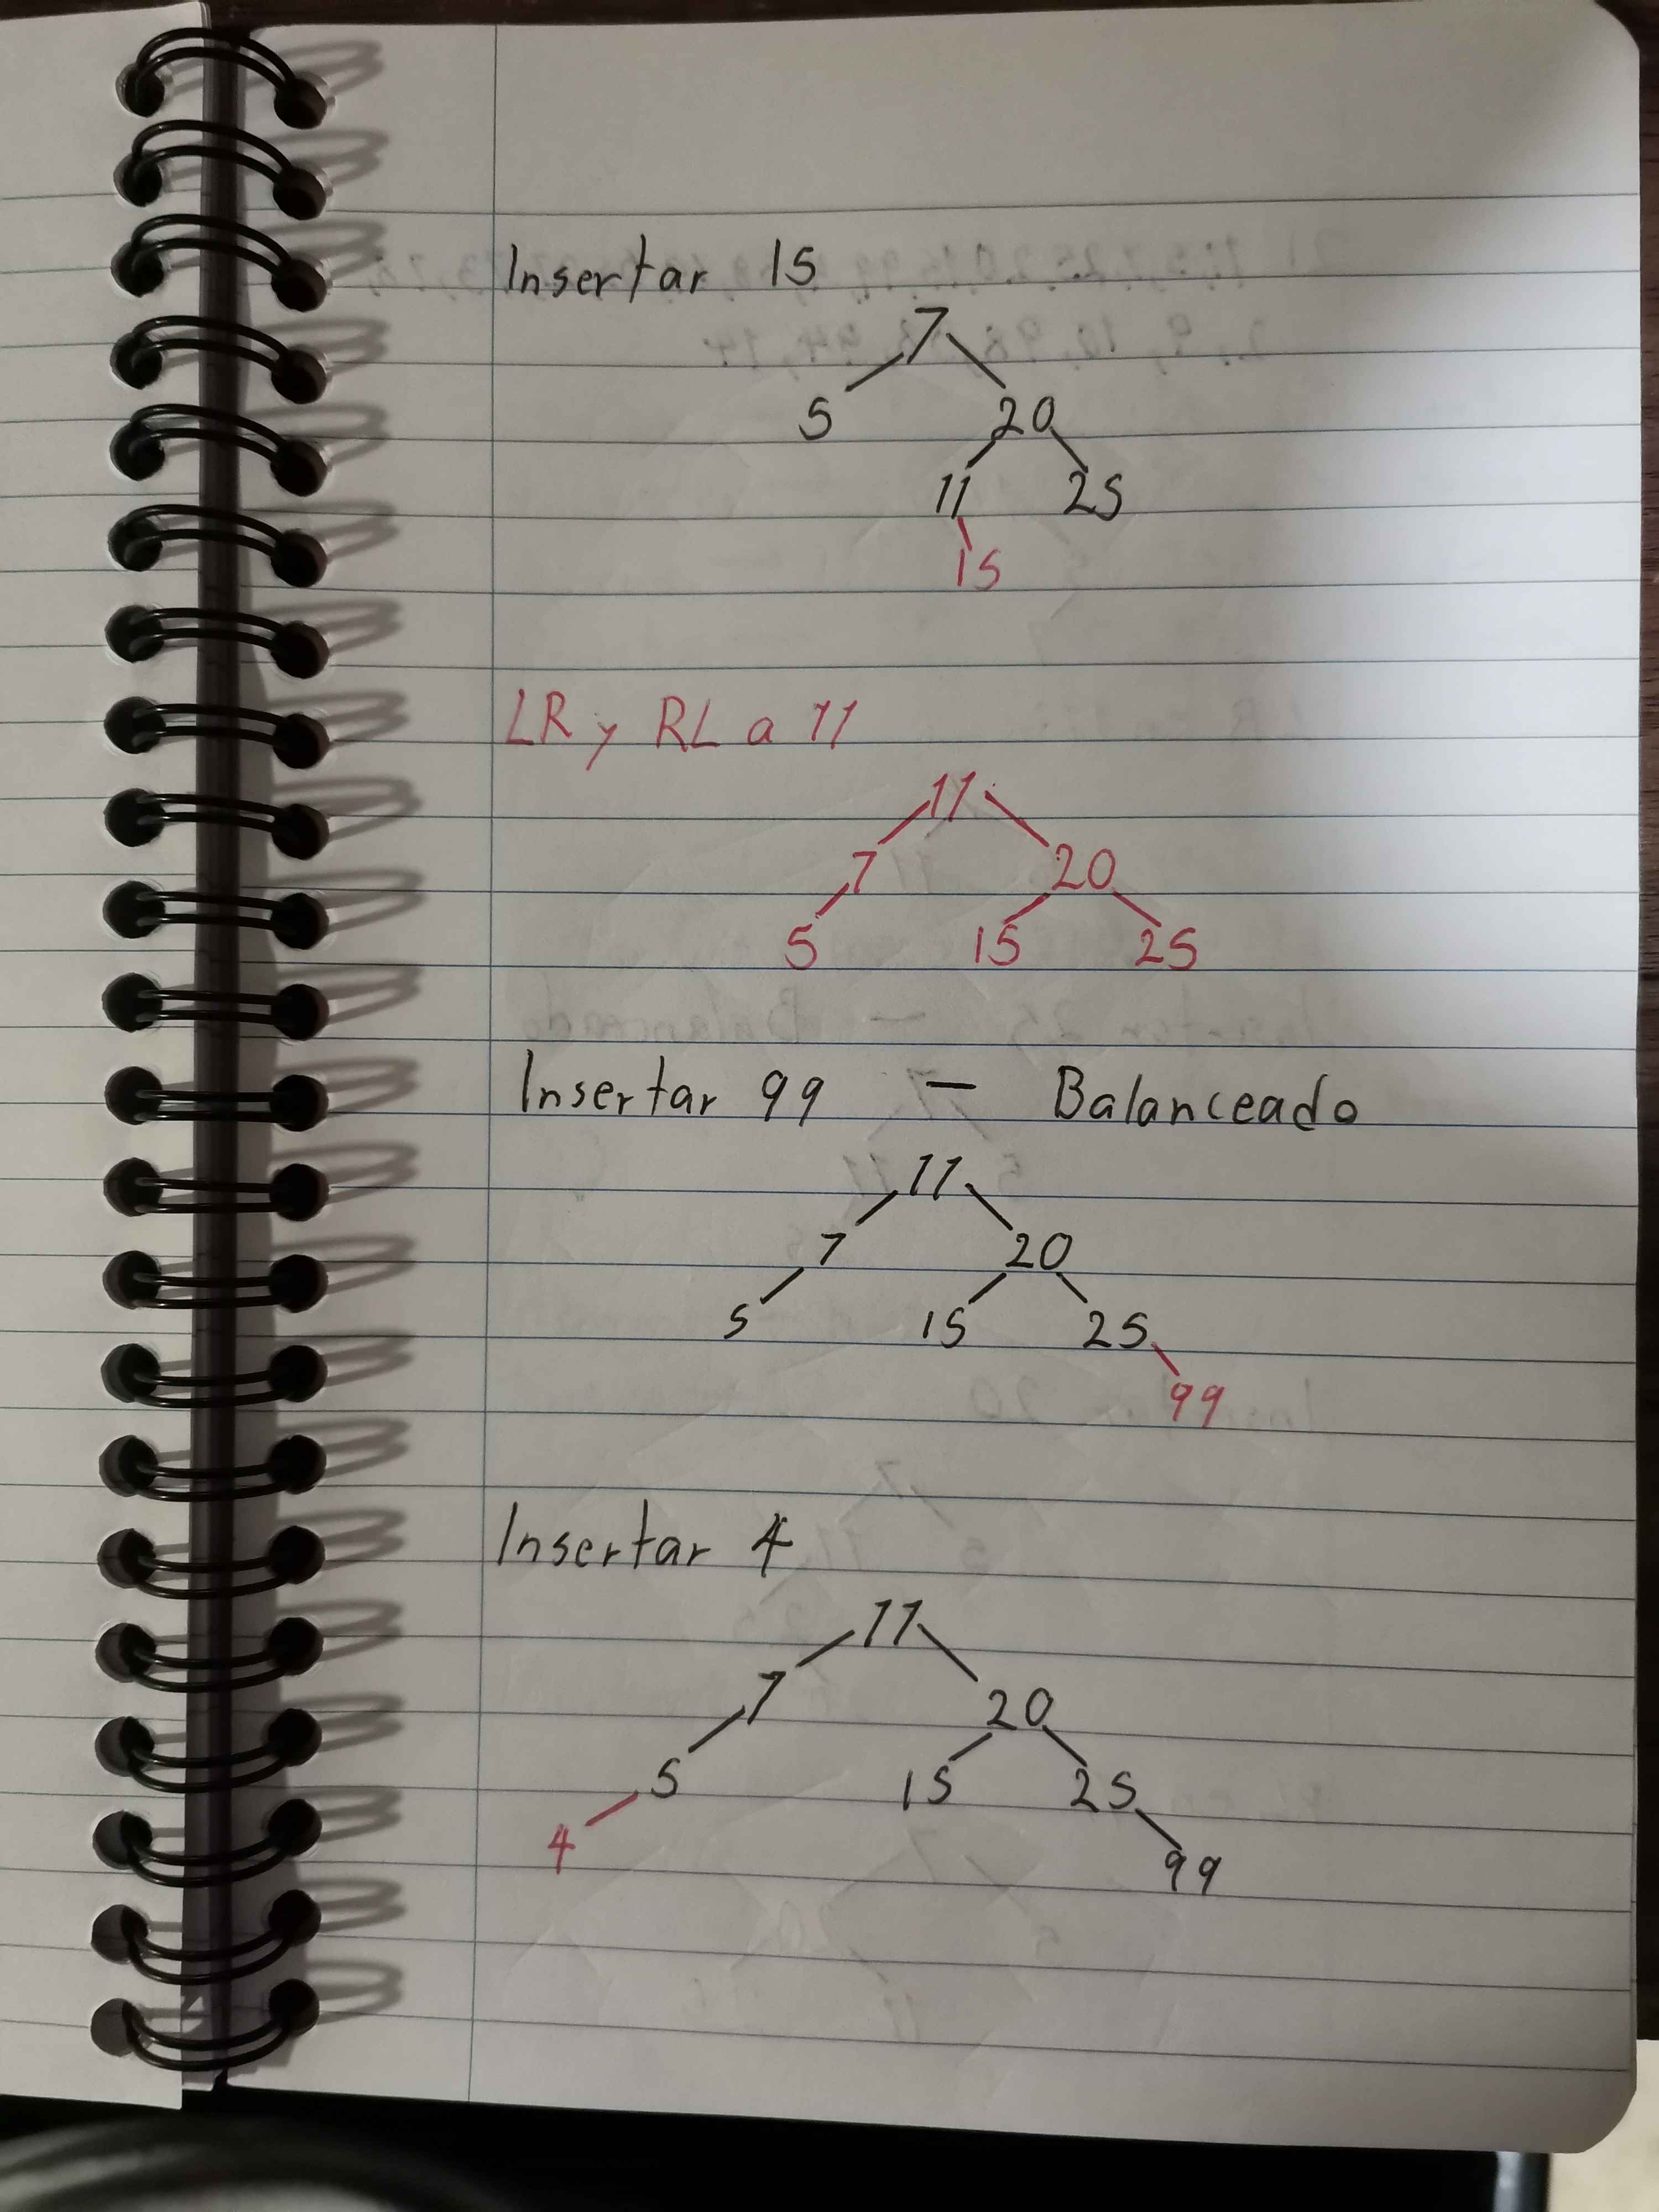 Insertar 15
7
5 20
11 25
15
LR y RL a 11
11
7 20
5 15 25
Insertar 99 — Balanceado
11
7 20
5 15 25
99
Insertar 4
11
7 20
5 15 25
4 99